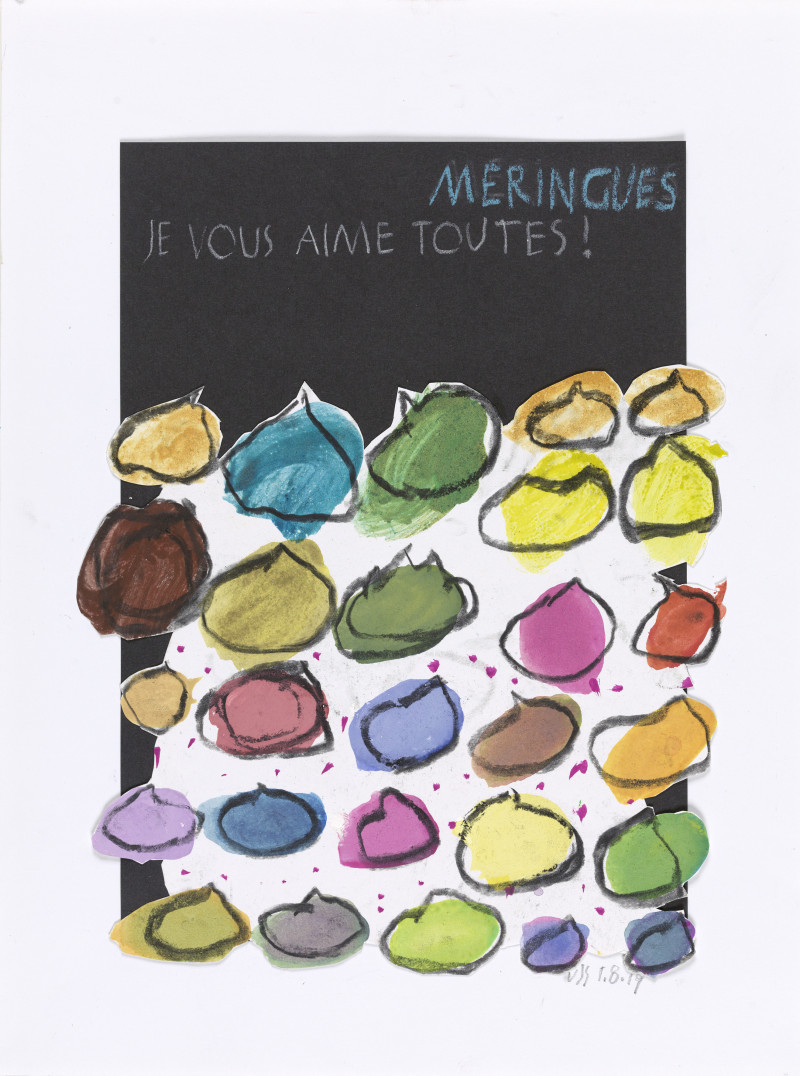 MÉRINGUES
JE VOUS AIME TOUTES!
1.8.19